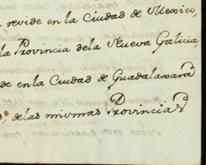 revide en la Ciudad de Mexico
la Provincia dela Nueva Galicia
de en la Ciudad de Guadalaxara
de las mismas Provincias